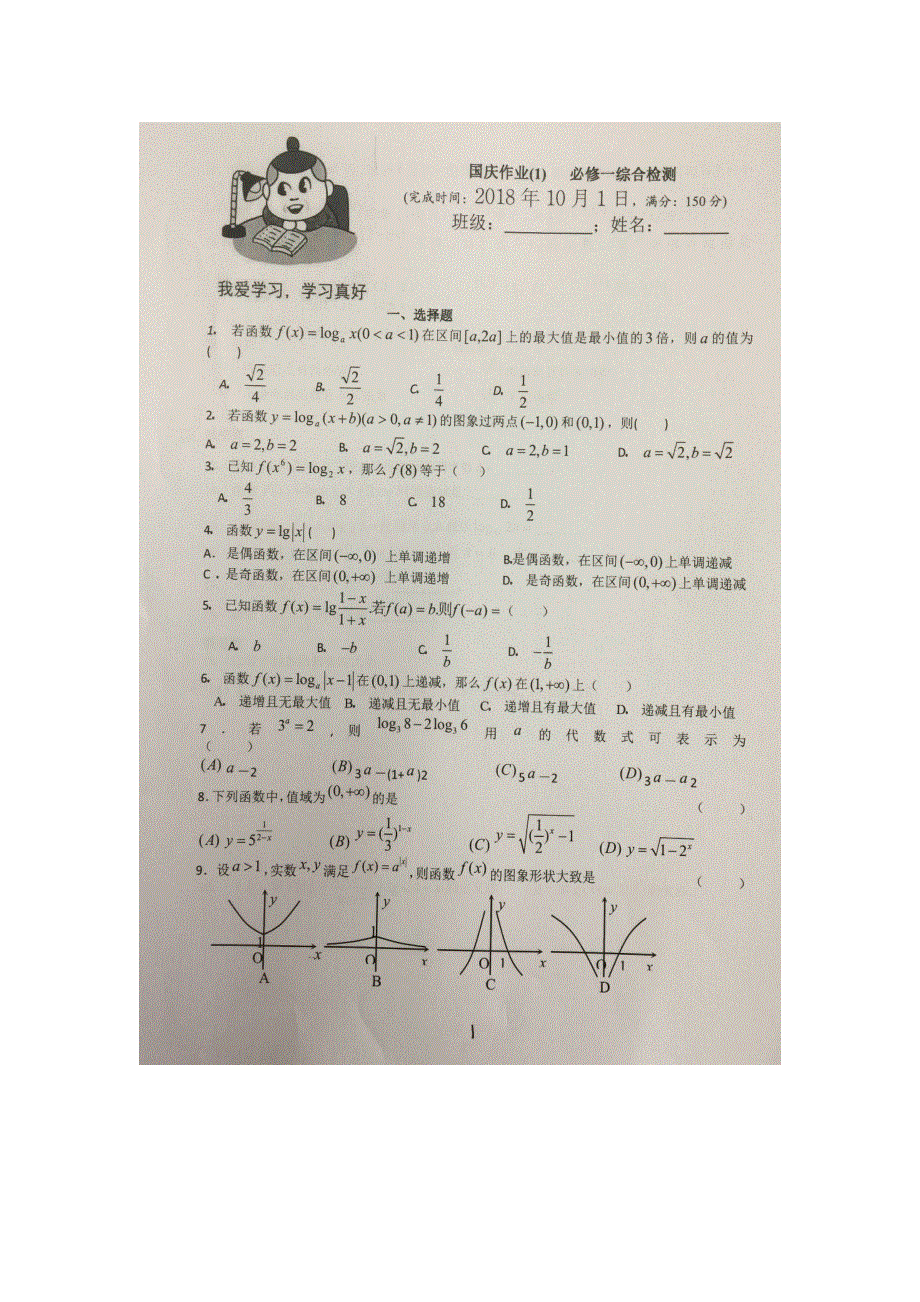 国庆作业(1) 必修一综合检测
(完成时间：2018 年 10 月 1 日，满分：150 分)
班级：________；姓名：______
我爱学习，学习真好
一、选择题
1. 若函数 f(x) = logₐ x(0 < a < 1) 在区间[a,2a] 上的最大值是最小值的 3 倍，则 a 的值为
( )
A. √2/4 B. √2/2 C. 1/4 D. 1/2
2. 若函数 y = logₐ (x + b)(a > 0, a ≠ 1) 的图象过两点(−1,0) 和(0,1)，则( )
A. a = 2, b = 2 B. a = √2, b = 2 C. a = 2, b = 1 D. a = √2, b = √2
3. 已知 f(x⁶) = log₂ x，那么 f(8) 等于（ ）
A. 4/3 B. 8 C. 18 D. 1/2
4. 函数 y = lg|x| ( )
A. 是偶函数，在区间(−∞,0) 上单调递增 B.是偶函数，在区间(−∞,0)上单调递减
C .是奇函数，在区间(0,+∞) 上单调递增 D. 是奇函数，在区间(0,+∞)上单调递减
5. 已知函数 f(x) = lg (1−x)/(1+x) .若f(a) = b.则f(−a) =（ ）
A. b B. −b C. 1/b D. −1/b
6. 函数 f(x) = logₐ |x−1| 在(0,1) 上递减，那么 f(x) 在(1,+∞)上（ ）
A. 递增且无最大值 B. 递减且无最小值 C. 递增且有最大值 D. 递减且有最小值
7 . 若 3ᵃ = 2 ，则 log₃ 8 − 2log₃ 6 用 a 的代数式可表示为
（ ）
(A) a－2 (B) 3 a－(1+ a )2 (C) 5 a－2 (D) 3 a－ a 2
8.下列函数中,值域为 (0,+∞) 的是 （ ）
(A) y = 5^(1/(2−x)) (B) y = (1/3)^(1−x) (C) y = √((1/2)ˣ − 1) (D) y = √(1−2ˣ)
9. 设 a > 1 ,实数 x, y 满足 f(x) = a^|x| ,则函数 f(x) 的图象形状大致是 （ ）
y y y y
1 1
O x O x O 1 x O 1 x
A B C D
1